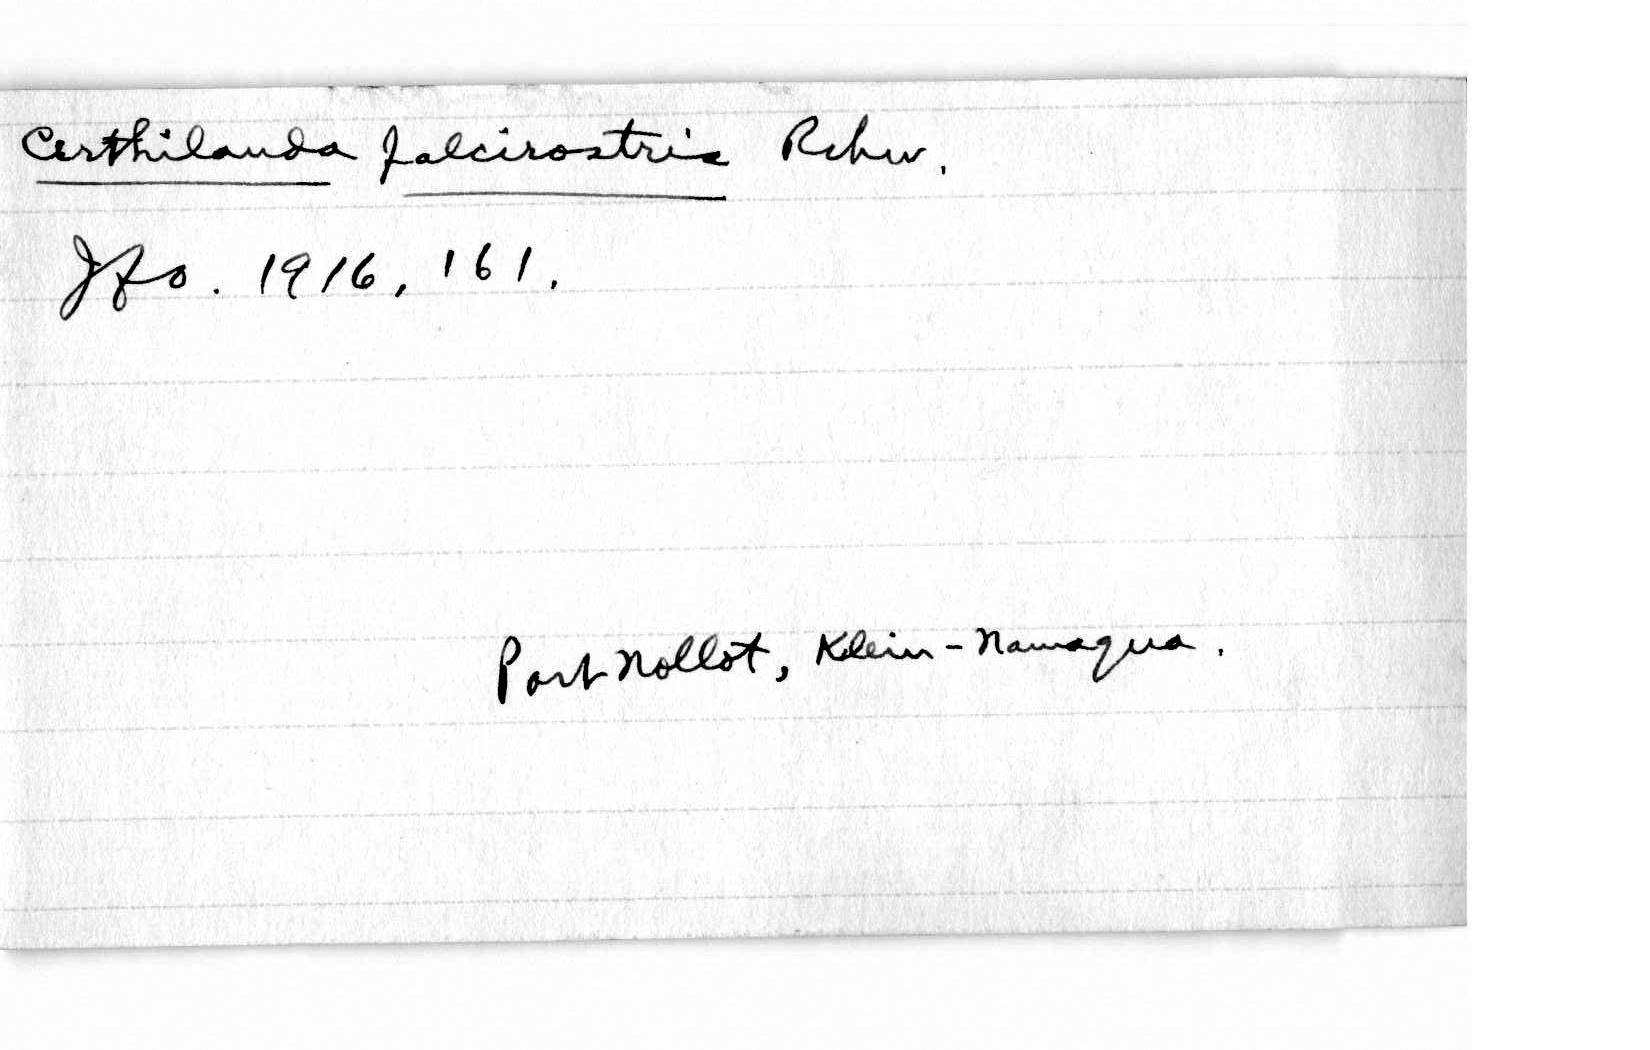 Certhilauda falcirostris Rchw.
Jfo. 1916, 161.
Port Nollot, Klein-Namaqua.